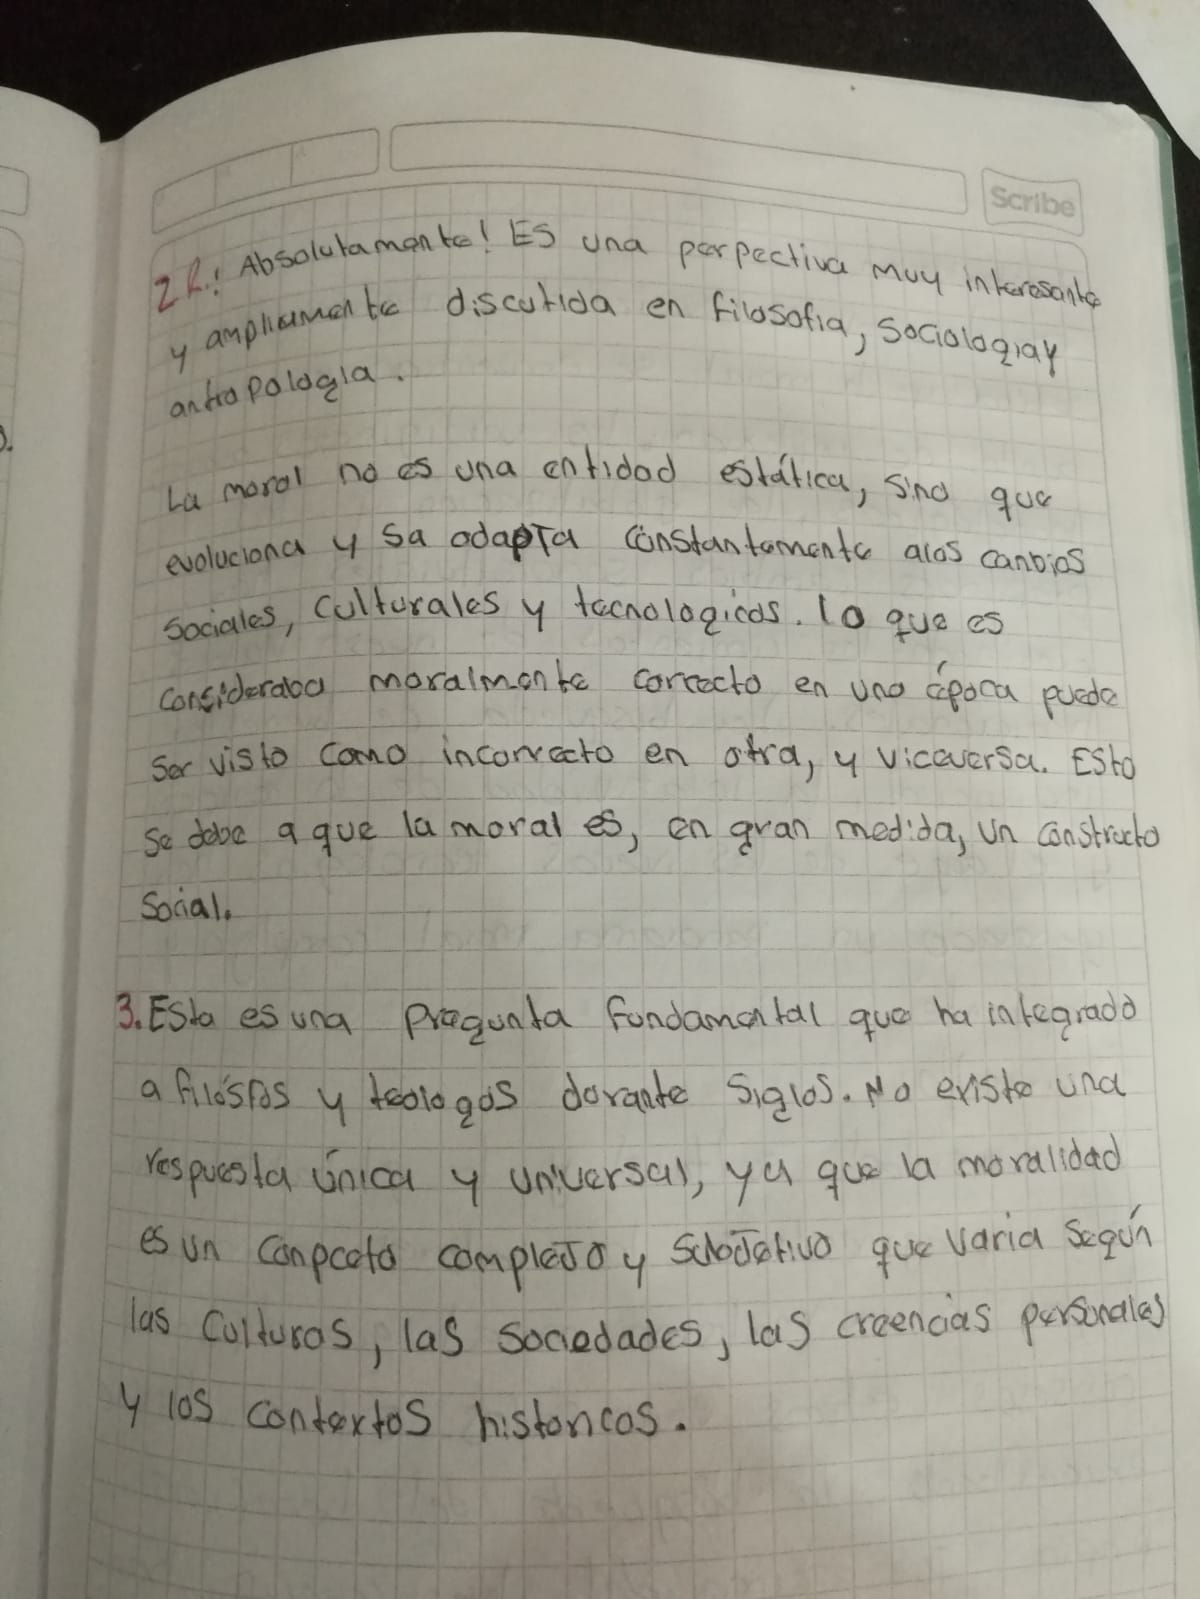 Scribe
2R.! Absolutamente! Es una perpectiva muy interesante
y ampliamente discutida en filosofia, sociologiay
antropologia.
La moral no es una entidad estática, sino que
evoluciona y sa adapta constantemente alos canbios
sociales, culturales y tecnologicos. lo que es
considerado moralmente correcto en una época puede
ser visto como incorrecto en otra, y viceversa. Esto
se debe a que la moral es, en gran medida, un constructo
social.
3. Esta es una pregunta fundamental que ha integrado
a filósfos y teologos durante siglos. No existe una
respuesta única y universal, ya que la moralidad
es un conpceto complejo y subjetivo que varia según
las culturas, las sociedades, las creencias personales
y los contextos historicos.